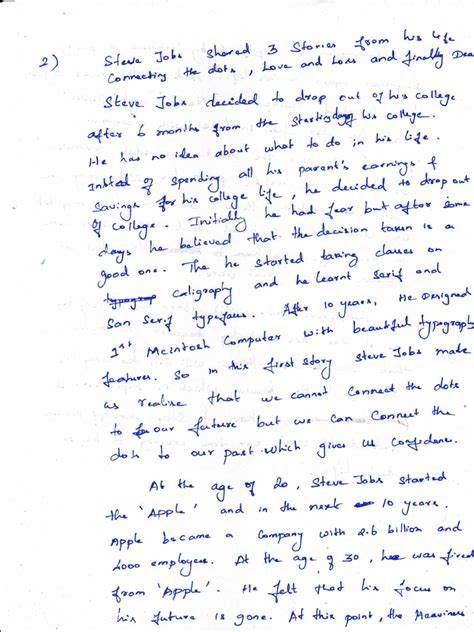 2) Steve Jobs Shared 3 Stories from his life
Connecting the dots, Love and Loss and finally Dea
Steve Jobs decided to drop out of his college
after 6 months from the starting his college.
He has no idea about what to do in his life.
of spending all his parent's earnings &
Savings for his college life, he decided to drop out
of college. Initially he had fear but after some
days he believed that the decision taken is a
good one. The he started taking classes on
Caligraphy and he learnt Serif and
San Serif typefaces. After 10 years, He Designed
1st Mcintosh Computer with beautiful typography
features. So in this first story Steve Jobs made
us realise that we cannot Connect the dots
to our future but we can Connect the
dots to our past which gives us confidence.
At the age of 20, Steve Jobs started
the 'Apple' and in the next 10 years.
Apple became a Company with 2.6 billion and
4000 employees. At the age of 30, he was fired
from 'Apple'. He felt that his focus on
his future is gone. At this point, the Heaviness